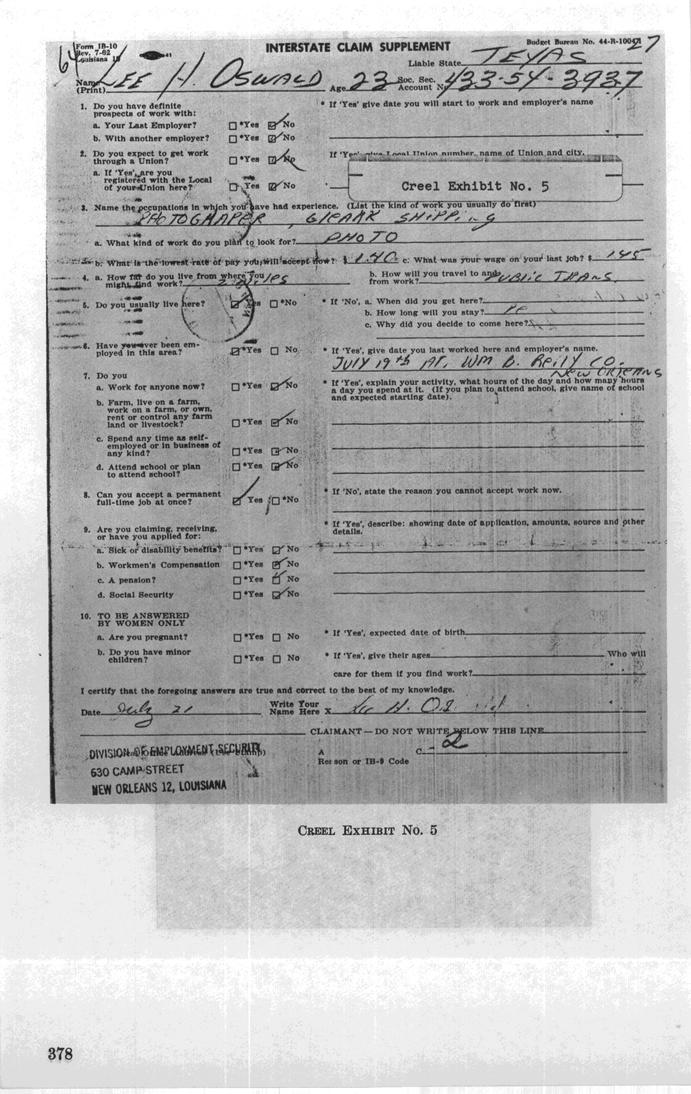 Form IB-10
Rev. 7-62
Louisiana IB
64
INTERSTATE CLAIM SUPPLEMENT
Budget Bureau No. 44-R-1004
27
Liable State TEXAS
Name LEE H. OSWALD Age 23 Soc. Sec. Account No. 433-54-3937
(Print)
1. Do you have definite prospects of work with:
* If 'Yes' give date you will start to work and employer's name
a. Your Last Employer? *Yes No
b. With another employer? *Yes No
2. Do you expect to get work through a Union? *Yes No
If 'Yes', give Local Union number, name of Union and city.
a. If 'Yes', are you registered with the Local of your Union here? Yes No
Creel Exhibit No. 5
3. Name the occupations in which you have had experience. (List the kind of work you usually do first)
PHOTOGRAPER, SHIPPING
a. What kind of work do you plan to look for? PHOTO
b. What is the lowest rate of pay you will accept now? $ 1.40 c. What was your wage on your last job? $ 145
4. a. How far do you live from where you might find work? MILES
b. How will you travel to and from work? PUBLIC TRANS.
5. Do you usually live here? Yes *No
* If 'No', a. When did you get here?
b. How long will you stay?
c. Why did you decide to come here?
6. Have you ever been employed in this area? *Yes No
* If 'Yes', give date you last worked here and employer's name.
JULY 19th AT. WM B. REILY CO.
NEW ORLEANS
7. Do you
a. Work for anyone now? *Yes No
* If 'Yes', explain your activity, what hours of the day and how many hours a day you spend at it. (If you plan to attend school, give name of school and expected starting date).
b. Farm, live on a farm, work on a farm, or own, rent or control any farm land or livestock? *Yes No
c. Spend any time as self-employed or in business of any kind? *Yes No
d. Attend school or plan to attend school? *Yes No
8. Can you accept a permanent full-time job at once? Yes *No
* If 'No', state the reason you cannot accept work now.
9. Are you claiming, receiving, or have you applied for:
* If 'Yes', describe: showing date of application, amounts, source and other details.
a. Sick or disability benefits? *Yes No
b. Workmen's Compensation *Yes No
c. A pension? *Yes No
d. Social Security *Yes No
10. TO BE ANSWERED BY WOMEN ONLY
a. Are you pregnant? *Yes No
* If 'Yes', expected date of birth
b. Do you have minor children? *Yes No
* If 'Yes', give their ages Who will
care for them if you find work?
I certify that the foregoing answers are true and correct to the best of my knowledge.
Date July 21 Write Your Name Here X Lee H. Oswald
CLAIMANT — DO NOT WRITE BELOW THIS LINE
DIVISION OF EMPLOYMENT SECURITY
630 CAMP STREET
NEW ORLEANS 12, LOUISIANA
A C -2
Reason or IB-9 Code
CREEL EXHIBIT No. 5
378